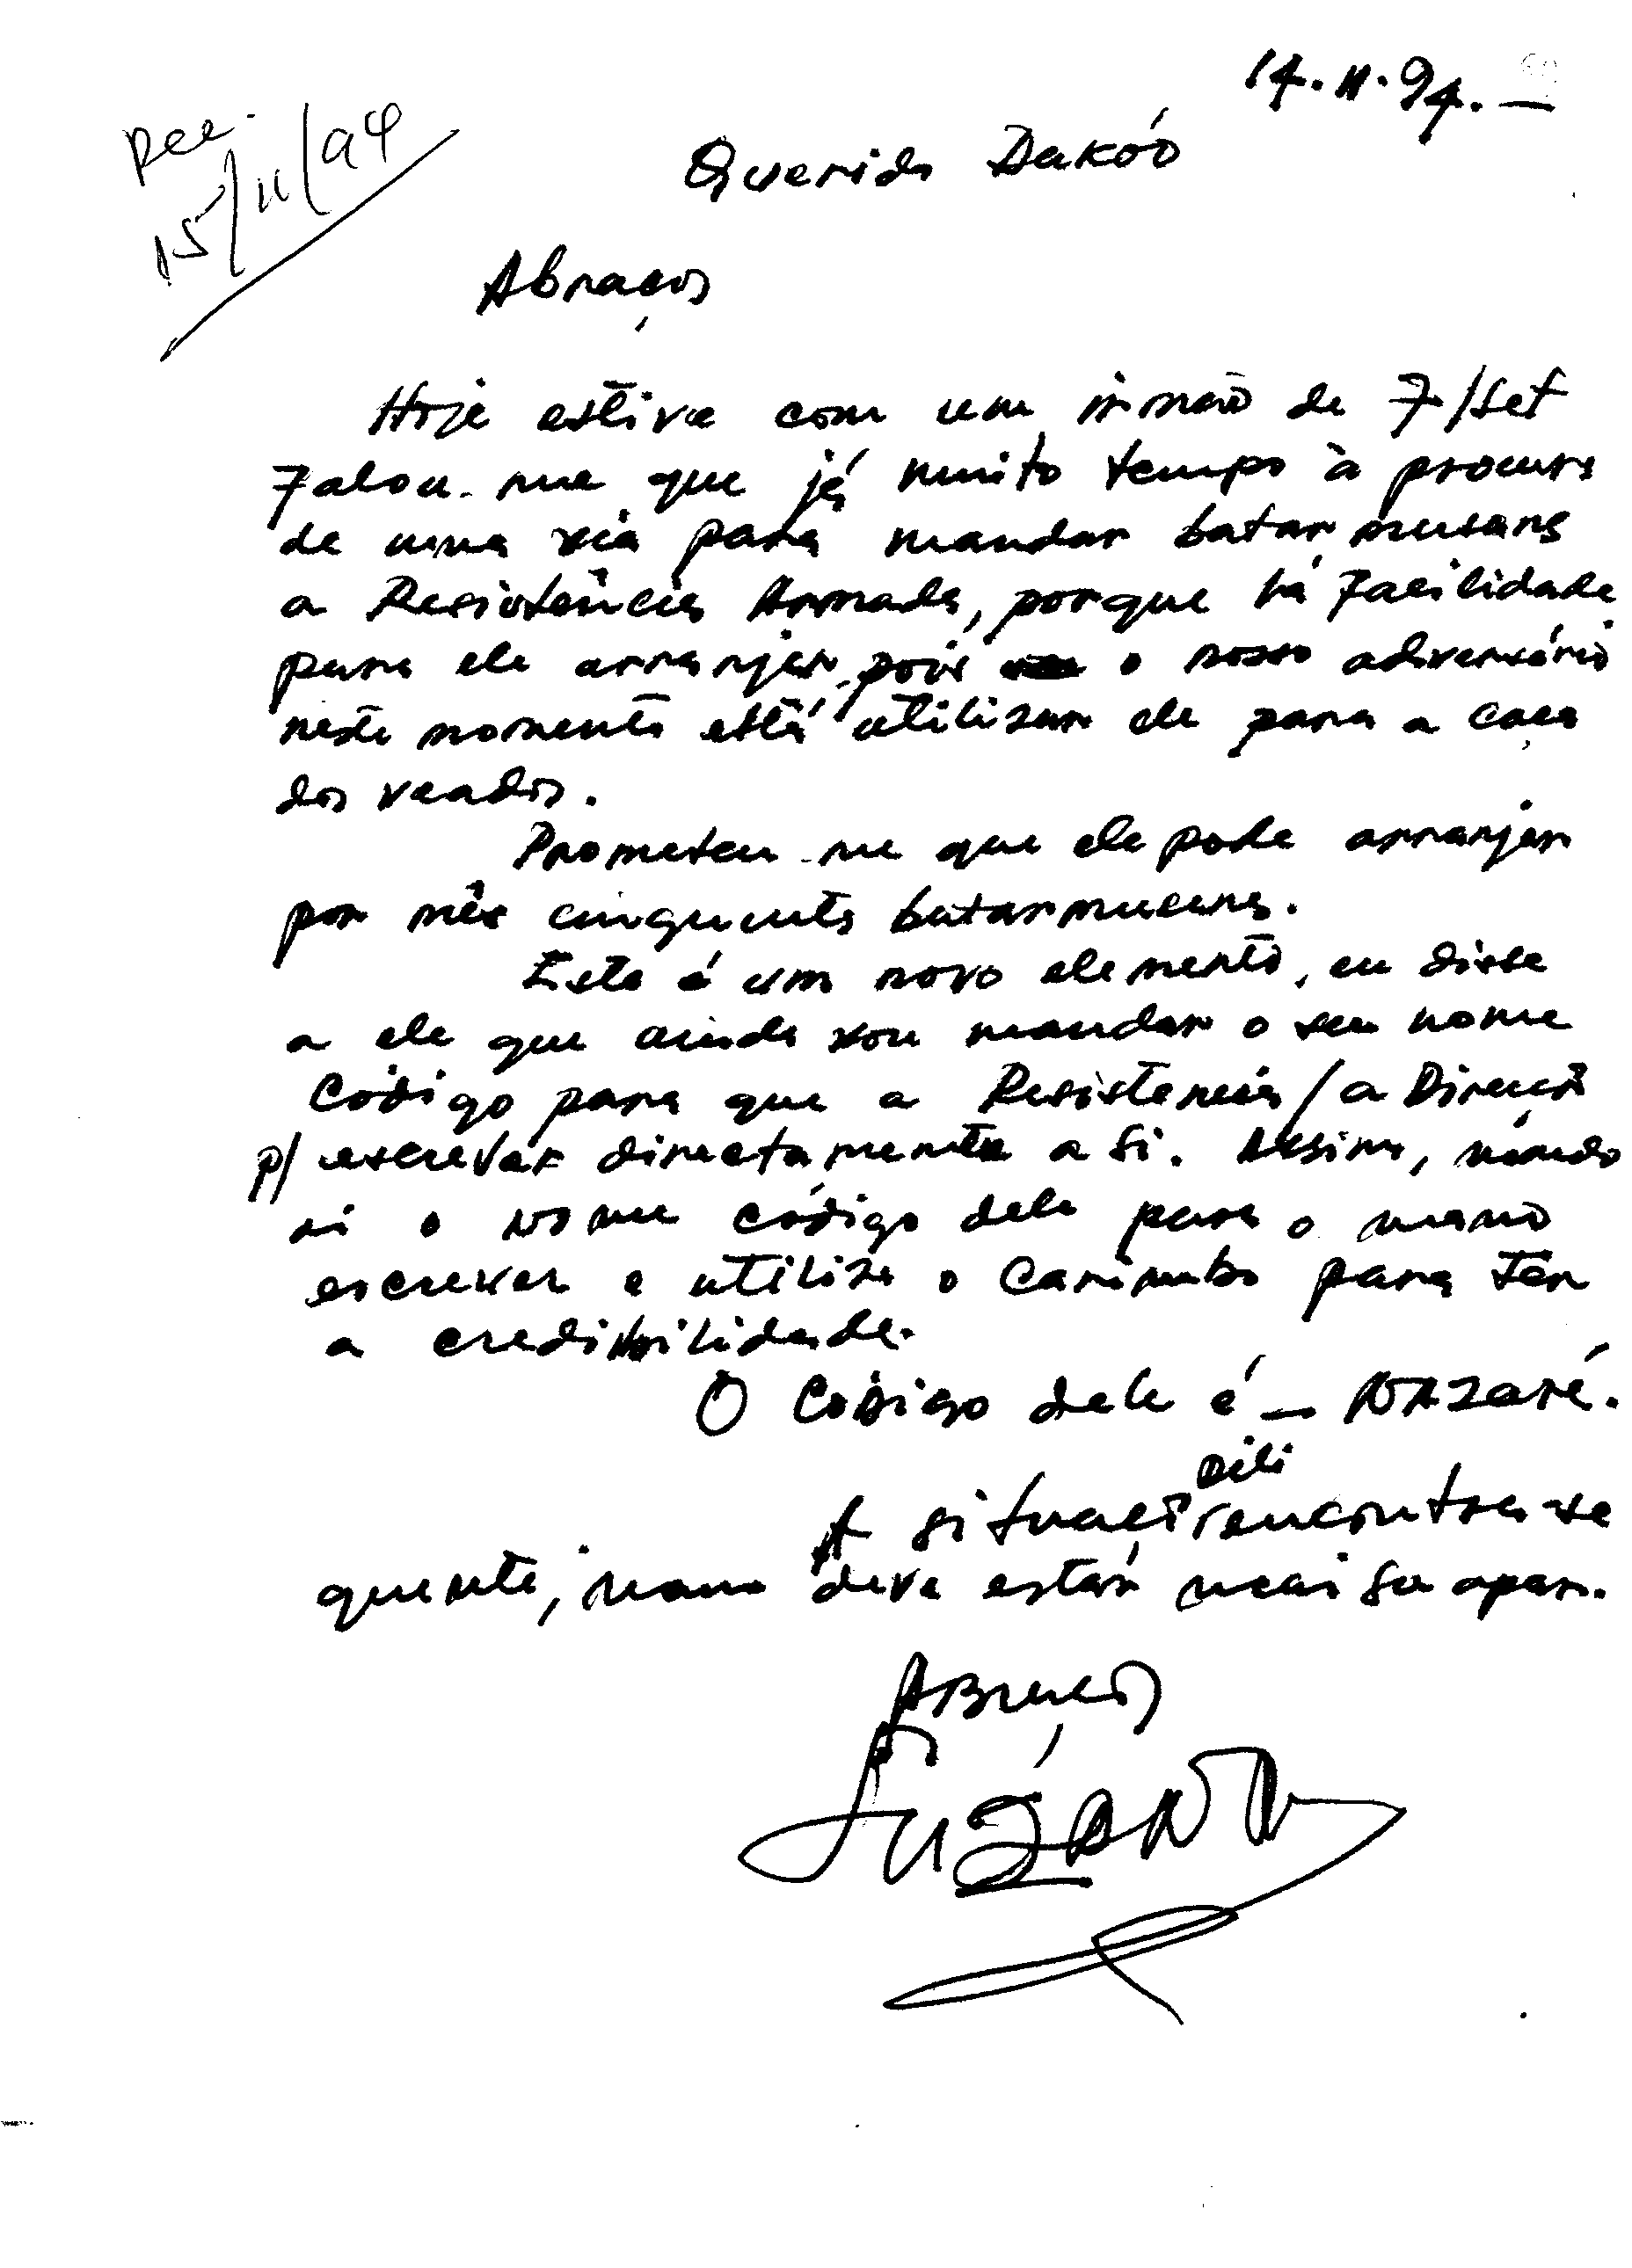 14.11.94.—
Rec.
15/11/94
Querido Dakóò
Abraços
Hoje estive com um irmão de 7/Set
Falou-me que já muito tempo à procura
de uma via para mandar batar musans
a Resistência Armada, porque há facilidade
para ele arranjar, pois o nosso adiversário
neste momento está utilizar ele para a caça
dos veados.
Prometeu-me que ele pode arranjar
por mês cinquenta batarmucans.
Este é um novo elemento, eu disse
a ele que ainda vou mandar o seu nome
Código para que a Resistencia/a Direcçã
p/ escrever directamente a si. Assim, mando
aí o nome código dele para o mano
escrever e utiliza o Carimbo para ter
a credibilidade.
O Código dele é — NAZARÉ.
Dili
A situaçã encontra-se
quente, mano deve estar mais a par.
ABraços